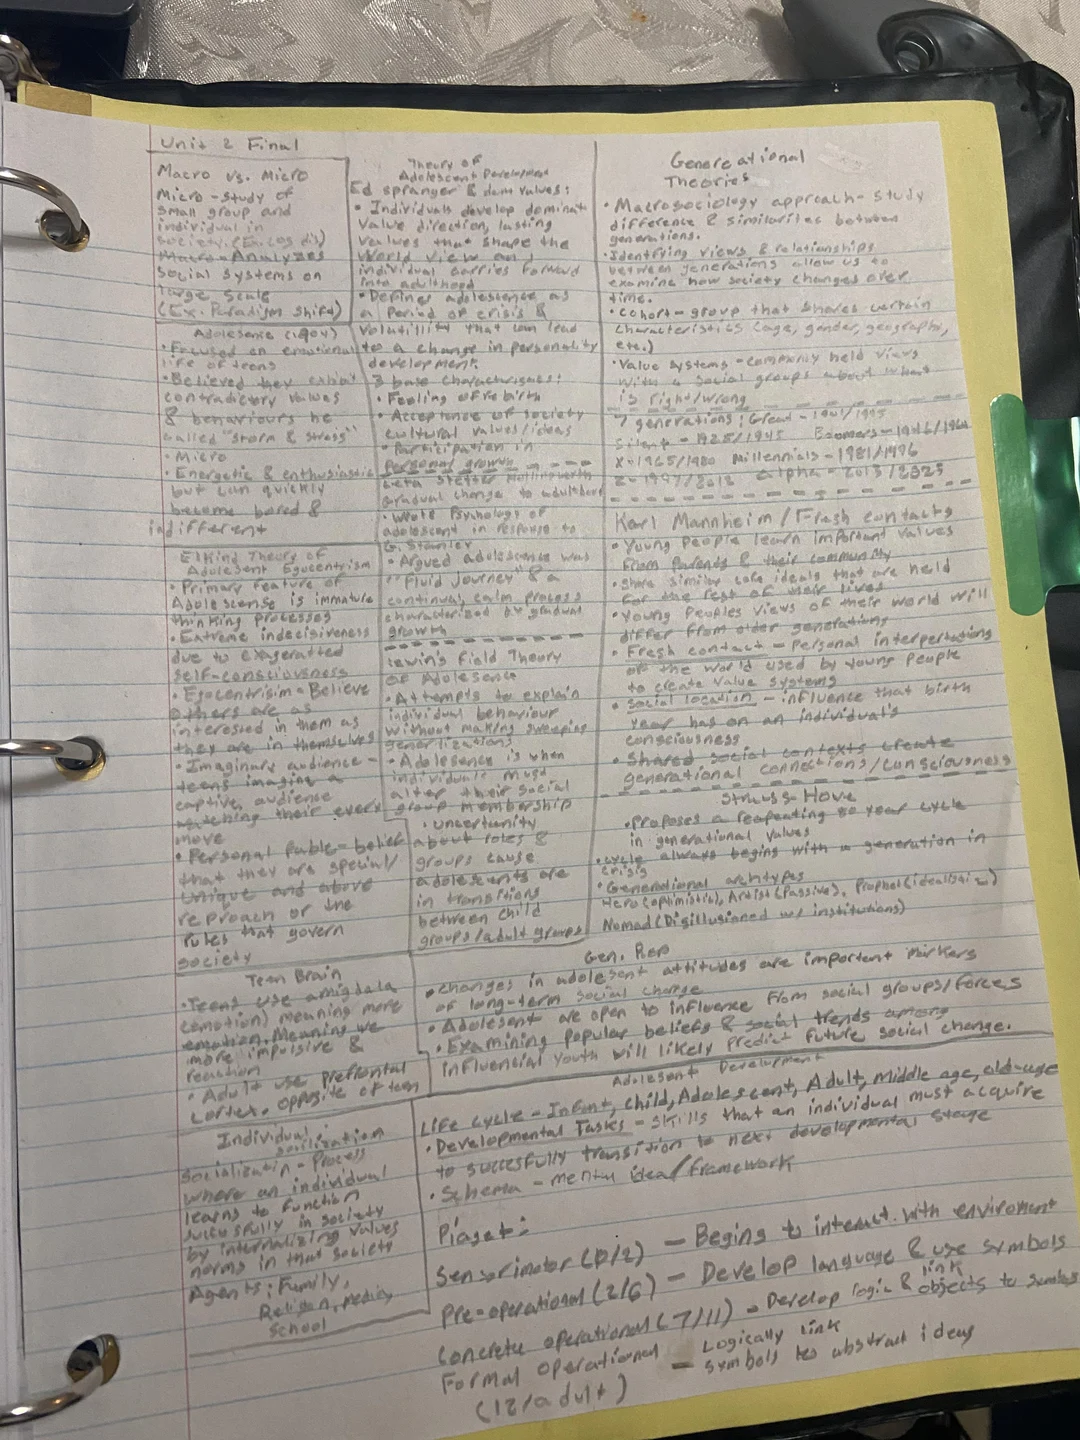 Unit 2 Final
Macro vs. Micro
Micro - Study of
small group and
individual in
society.
Macro - Analyzes
social systems on
large scale
(Ex. Paradigm Shift)
Adolesense (1904)
• Focused on emotional
life of teens
• Believed they exhibit
contradictory values
& behaviours he
called "storm & stress"
• Micro
• Energetic & enthusiastic
but can quickly
become bored &
indifferent
Elkind Theory of
Adolesent Egocentrism
• Primary feature of
Adolescense is immature
thinking processes
• Extreme indecisiveness
due to exageratted
self-consciousness
• Egocentrisim = Believe
others are as
interested in them as
they are in themselves
• Imaginary audience -
teens imaging a
captive, audience
watching their every
move
• Personal fable - belief
that they are special/
unique and above
reproach or the
rules that govern
society
Teen Brain
• Teens use amigdala
(emotion) meaning more
emotion. Meaning we
more impulsive &
reaction
• Adult use prefrontal
cortex. opposite of teen
Individual
socilization
Socialization - Process
where an individual
learns to function
successfully in society
by internalizing values
norms in that society
Agents: Family,
Religion, media,
School
Theory of
Adolescent Development
Ed spranger & dom values:
• Individuals develop dominat
value direction, lasting
values that shape the
world view and
individual carries forward
into adulthood
• Defines adolescence as
a period of crisis &
volatillity that can lead
to a change in personality
development.
3 base characterisques:
• Feeling of rebirth
• Acceptance of society
cultural values/ideas
• Participation in
personal growth
Leta Stetter Hollingworth
gradual change to adulthood
• Wrote Psychology of
adolescent in response to
G. Stanley
• Argued adolescence was
"Fluid Journey" & a
continual, calm process
characterized by gradual
growth
Lewin's Field Theory
of Adolesence
• Attempts to explain
individual behaviour
without making sweeping
generlizations
• Adolesence is when
individuals must
alter their social
group membership
• uncertainity
about roles &
groups cause
adolescents are
in transition
between child
groups/adult groups
Genereational
Theories
• Macrosociology approach - study
difference & similarites between
generations.
• Identifying views & relationships
between generations allow us to
examine how society changes over
time.
• Cohort - group that shares certain
characteristics (age, gender, geography,
etc.)
• Value systems - commonly held views
with a social groups about what
is right/wrong
7 generations: Great - 1901/1945
Silent - 1925/1945 Boomers - 1946/1964
X - 1965/1980 Millennials - 1981/1996
Z - 1997/2012 Alpha - 2013/2025
Karl Mannheim / Fresh contacts
• Young people learn important values
from parents & their community
• share similar core ideals that are held
for the rest of their lives
• Young peoples views of their world will
differ from older generations
• Fresh contact - personal interpertations
of the world used by young people
to create value systems
• Social location - influence that birth
year has on an individual's
consciousness
• Shared social contexts create
generational connections/consciousness
Strauss-Howe
• Proposes a reapeating 80 year cycle
in generational values
• cycle always begins with a generation in
crisis
• Generational archtypes
Hero (optimistic), Artist (Passive), Prophet (idealistic)
Nomad (Disillusioned w/ institutions)
Gen. Rep
• changes in adolesent attitudes are important markers
of long-term social change
• Adolesent are open to influence from social groups/forces
• Examining popular beliefs & social trends among
influencial youth will likely predict future social change.
Adolesent Development
Life cycle - Infant, Child, Adolescent, Adult, Middle age, old-age
• Developmental Tasks - skills that an individual must acquire
to succesfully transition to next developmental stage
• Schema - mental idea/framework
Piaget:
Sensorimotor (0/2) - Begins to interact with enviroment
Pre-operational (2/6) - Develop language & use symbols
Concrete operational (7/11) - Develop logic & link objects to symbols
Formal operational - Logically link
(12/adult) symbols to abstract ideas